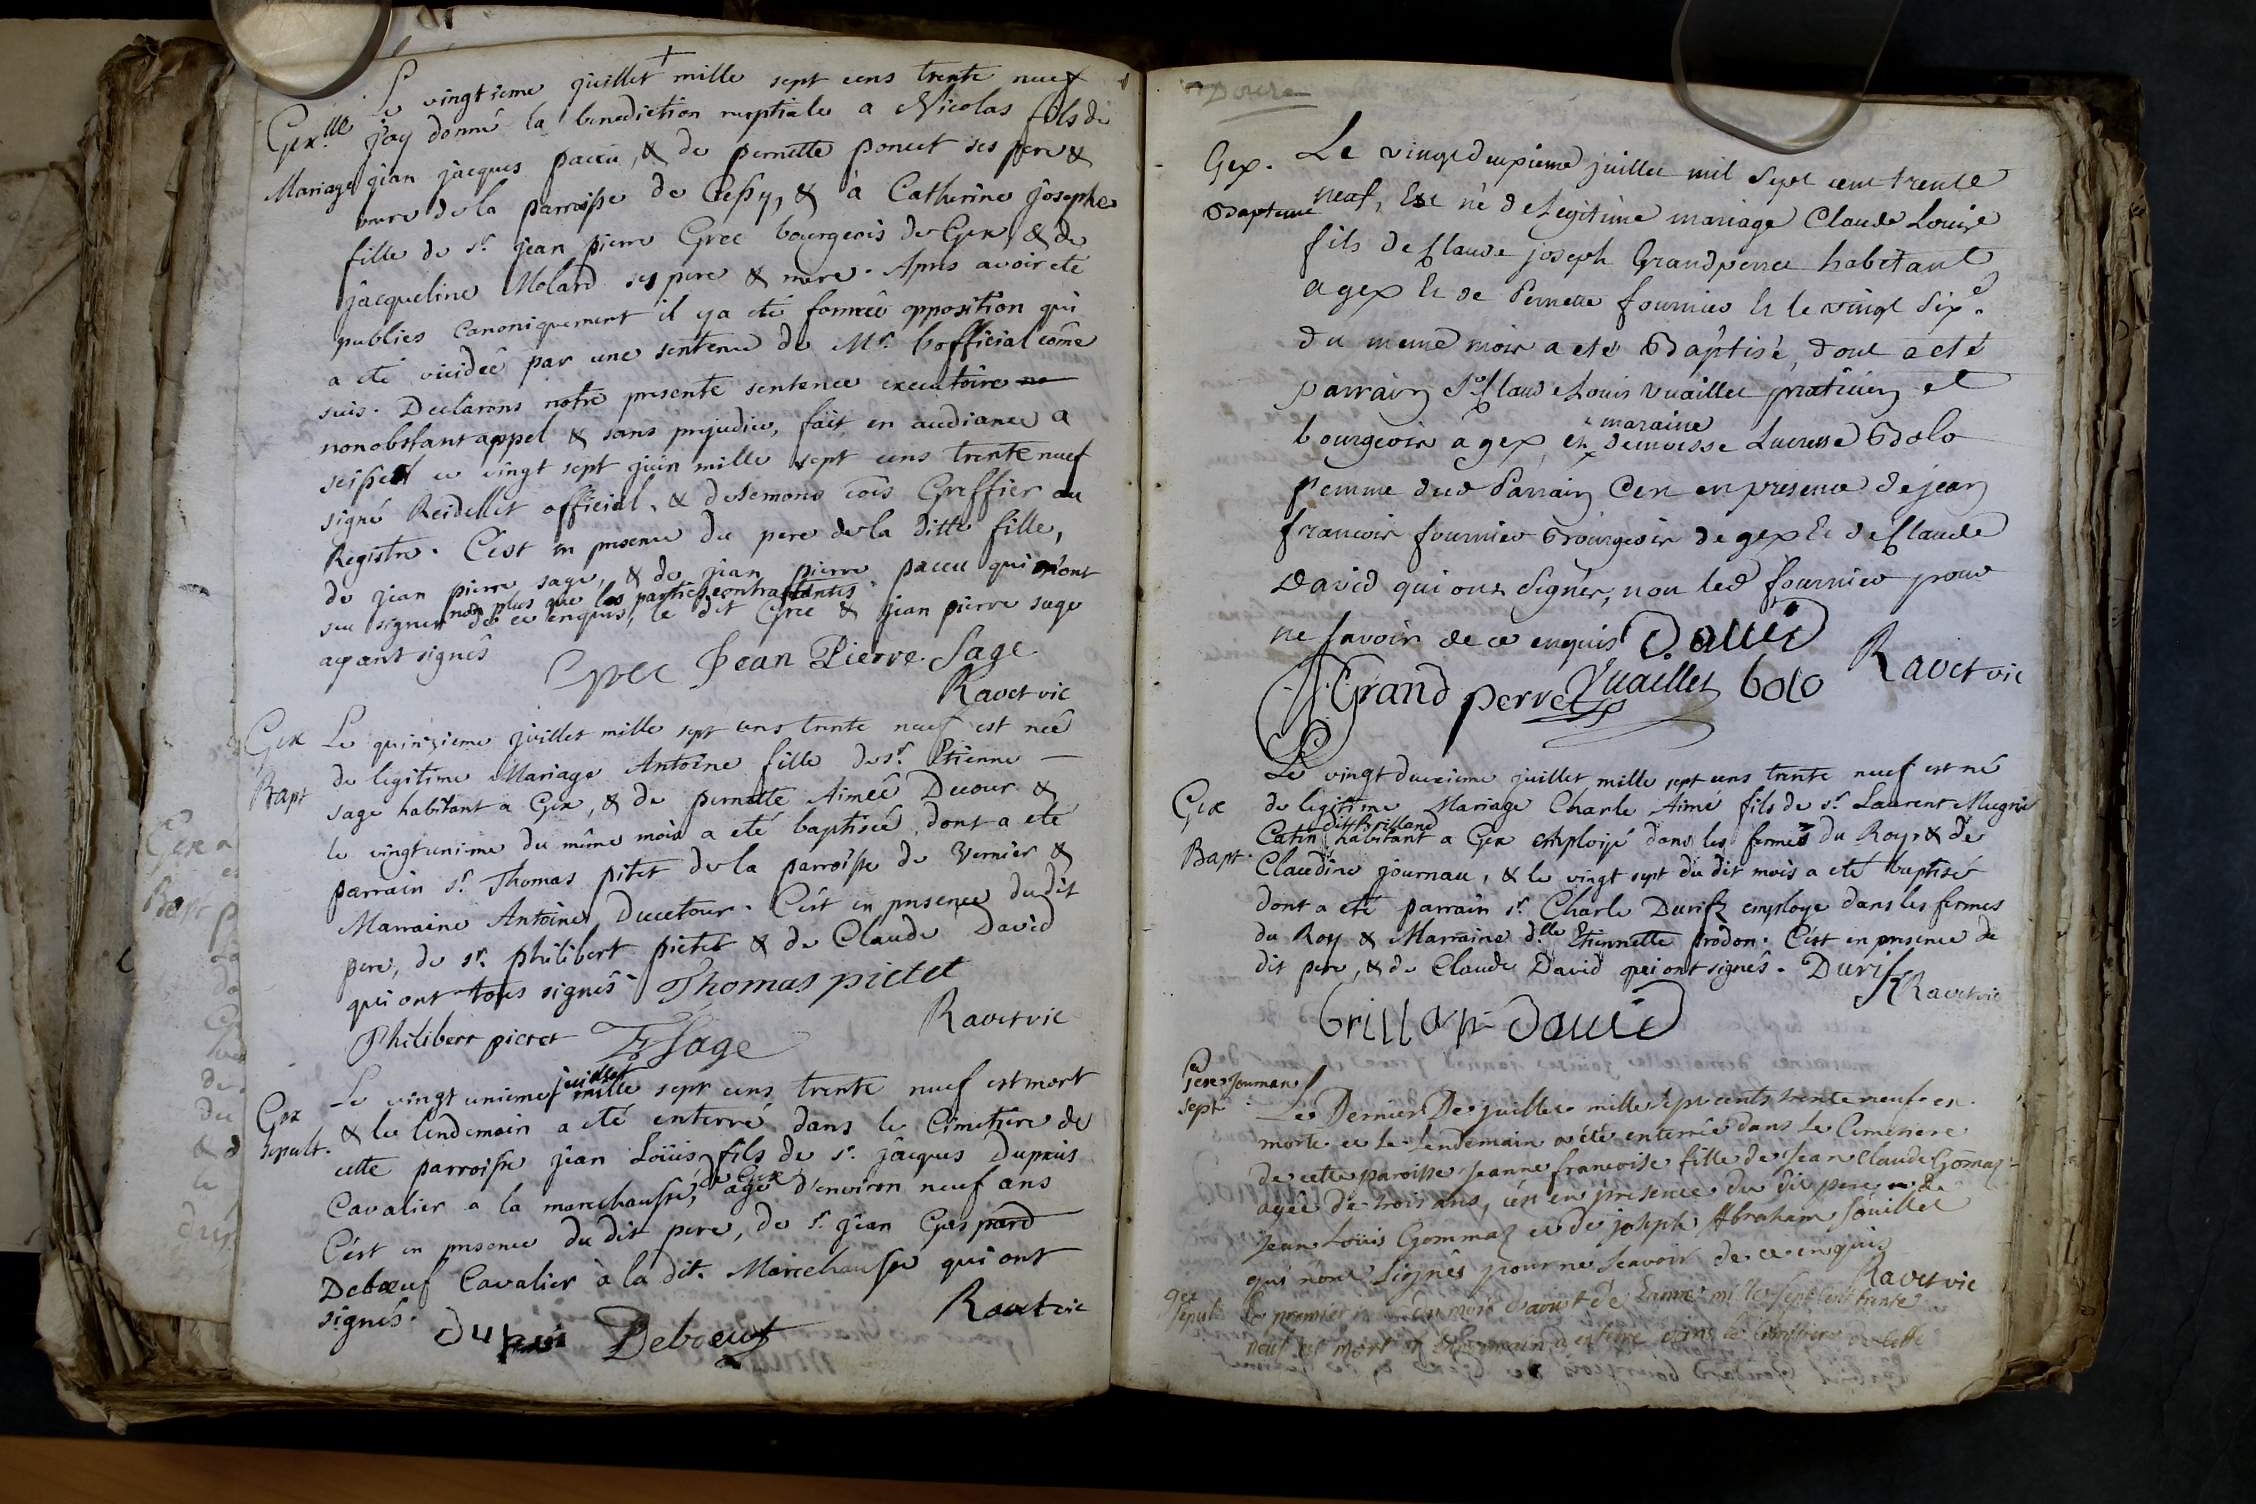 Le vingtieme juillet mille sept cens trente neuf
Gex.lle j'ay donné la benediction nuptiale a Nicolas fils de
Mariage jean jacques paccu, & de pernette poncet ses pere &
mere de la parroisse de Cessy, & à Catherine josephe
fille de sr. jean pierre Grec bourgeois de Gex, & de
jacqueline Molard ses pere & mere. Apres avoir eté
publies Canoniquement il y a eté formée opposition qui
a eté vuidée par une sentence de Mr. l'official côme
suis. Declarons notre presente sentence executoire
nonobstant appel & sans prejudice, fait en audiance a
seissel ce vingt sept juin mille sept cens trente neuf
signé Reidellet official, & Greffier au
Registre. C'est en presence du pere de la ditte fille,
de jean pierre sage, & de jean pierre paccu qui n'ont
non plus que les parties contractantes
seu signer de ce enquis, le dit Grec & jean pierre sage
ayant signés
Grec Jean Pierre Sage
Ravet vic
Gex Le quinzieme juillet mille sept cens trente neuf est née
de legitime Mariage Antoine fille de sr. Etienne
Bapt sage habitant a Gex, & de pernette Aimée Decour &
le vingtunieme du même mois a eté baptisée, dont a eté
parrain sr. Thomas pitet de la parroisse de Vernier &
Marraine Antoine Ducetour. C'est en presence du dit
pere, de sr. philibert pictet & de Claude David
qui ont tous signés Thomas pictet
Philibert pictet Sage Ravet vic
juillet
Le vingt unieme mille sept cens trente neuf est mort
Gex & le lendemain a eté enterré dans le Cimetiere de
sepult. cette parroisse jean Loüis fils de sr. jâcques Dupuis
de Gex
Cavalier a la marechaussé, agé d'environ neuf ans
C'est en presence du dit pere, de sr. jean Gaspard
Debœuf Cavalier à la dit. Marechaussé qui ont
signés. Ravet vic
dupuis Debœuf
Gex. Le vingt deuxieme juillet mil sept cent trente
Bapteme neuf, Est né de Legitime mariage Claude Louis
fils de Claude joseph Grandperret habitant
a gex Et de Pernette fournier Et le vingt six.e
du meme mois a eté Baptisé, dont a eté
parrain Sr Claude Louis Vuaillet praticien et
maraine
bourgeois a gex, et demoisse Lucresse Bolo
femme dud Parrain C'en en presence de jean
francois fournier Bourgeois de gex Et de Claude
David qui ont signés, non led fournier pour
ne savoir de ce enquis David
Grand perret Vuaillet bolo Ravet vic
Le vingt deuxieme juillet mille sept cens trente neuf est né
Gex de legitime Mariage Charle Aimé fils de sr. Laurent Mugnié
dit brilland
Catin habitant a Gex emploijé dans les fermes du Roy, & de
Bapt. Claudine journau, & le vingt sept du dit mois a eté baptisé
dont a eté parrain sr. Charle Durif employe dans les fermes
du Roy & Marraine d.lle Etiennette prodon. C'est en presence de
dit pere, & de Claude David qui ont signés. Durif
Ravet vic
brillan David
Gex
sept Le Dernier De juillet mille sept cents trente neuf est
morte et Le Lendemain a été enterrée dans Le Cimetiere
de cette paroisse Jeanne francoise fille de Jean Claude Gomaz
agée de trois ans, c'est en presence du dit pere et de
Jean Loüis Gommaz et de joseph Abraham souillet
qui n'ont signés pour ne scavoir de ce enquis
Ravet vic
gex Le premier du mois d'aout de l'anné mille sept cent trante
sepult neuf est mort et lendemain a enterre dans le Cimitiere de cette